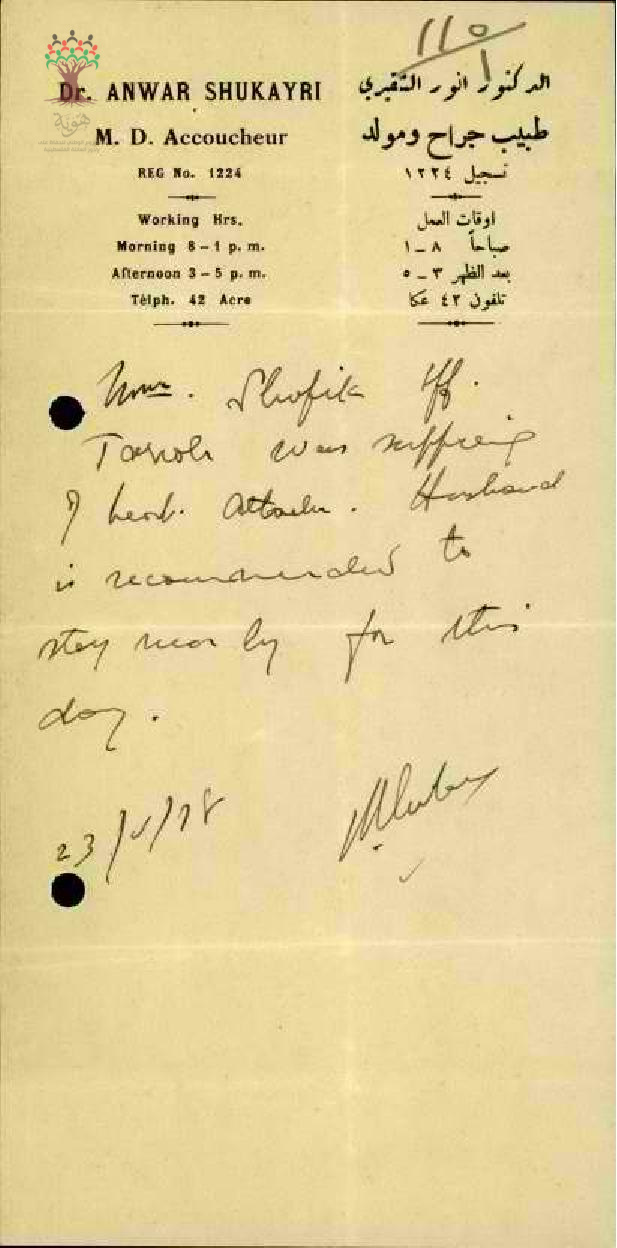 110
Dr. ANWAR SHUKAYRI
M. D. Accoucheur
REG No. 1224
Working Hrs.
Morning 8 – 1 p. m.
Afternoon 3 – 5 p. m.
Télph. 42 Acre
الدكتور انور الشقيري
طبيب جراح ومولد
تسجيل ١٢٢٤
اوقات العمل
صباحاً ٨ – ١
بعد الظهر ٣ – ٥
تلفون ٤٢ عكا
هوية
Shafik Eff.
was suffreing
of heart attack. Husband
is recommended to
stay near by for this
day.